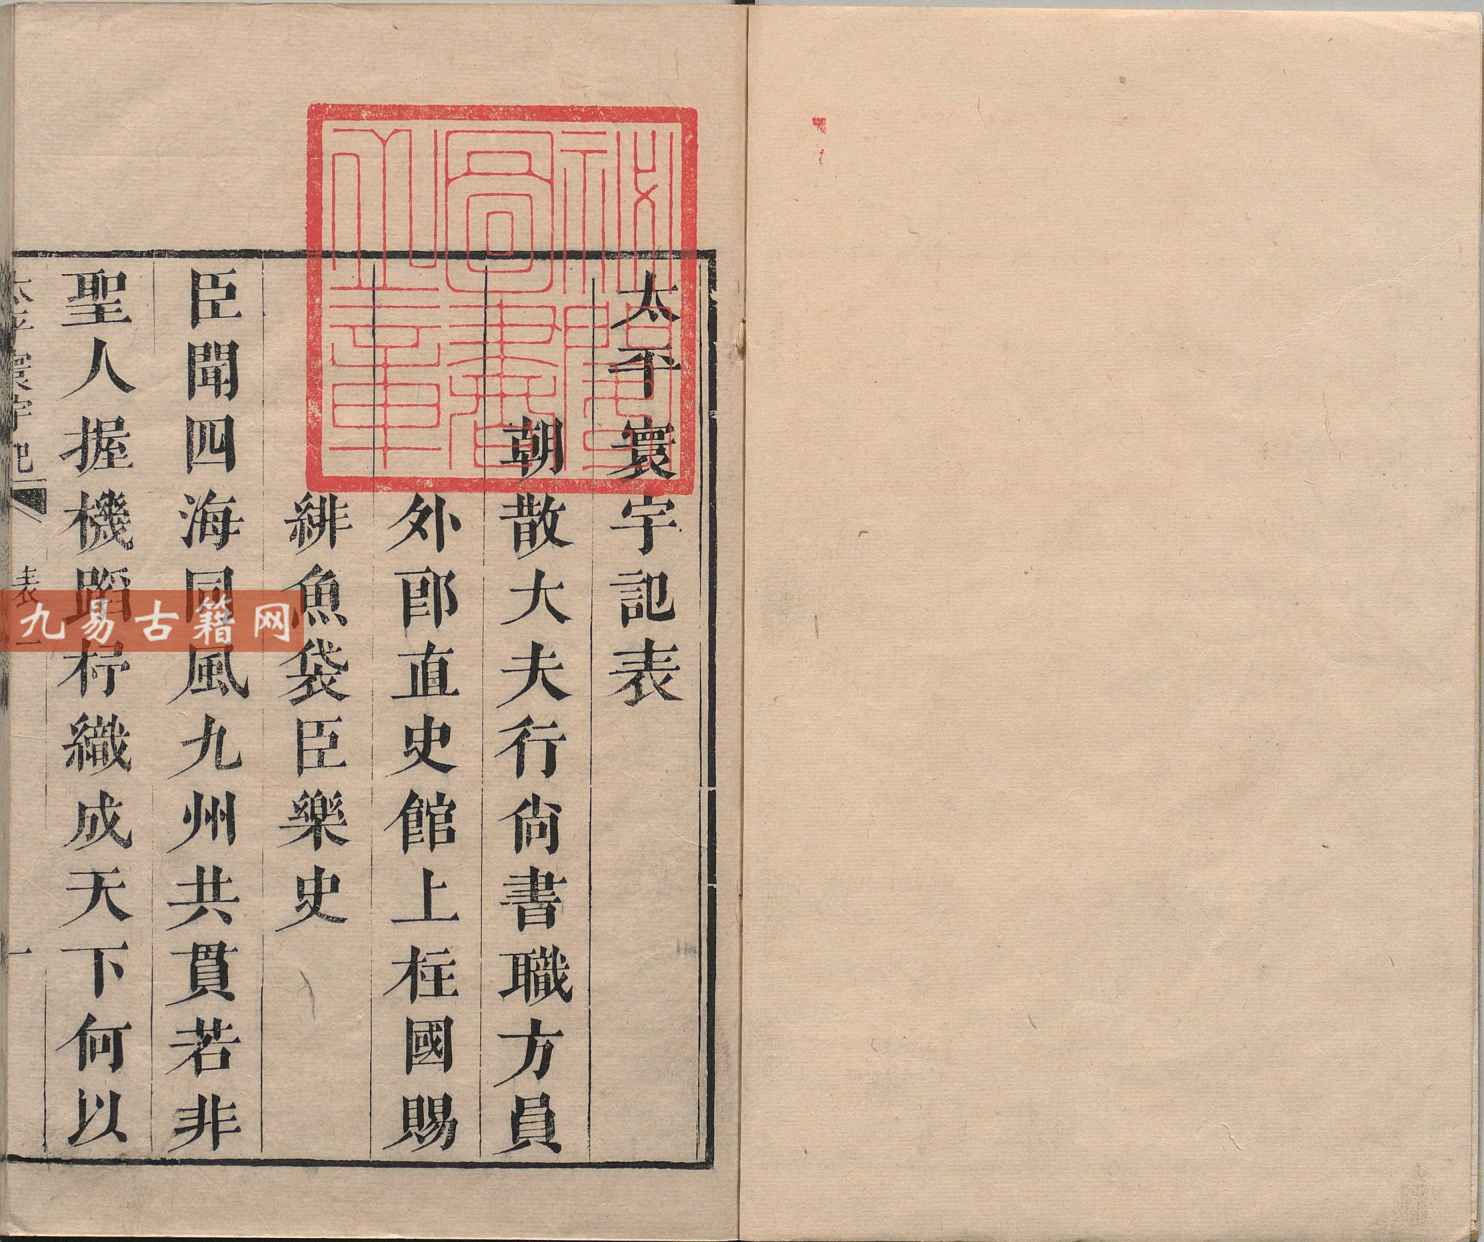 太平寰宇記表
朝散大夫行尚書職方員
外郎直史館上柱國賜
緋魚袋臣樂史
臣聞四海同風九州共貫若非
聖人握機蹈杼織成天下何以
太平寰宇記
表
一
九易古籍网